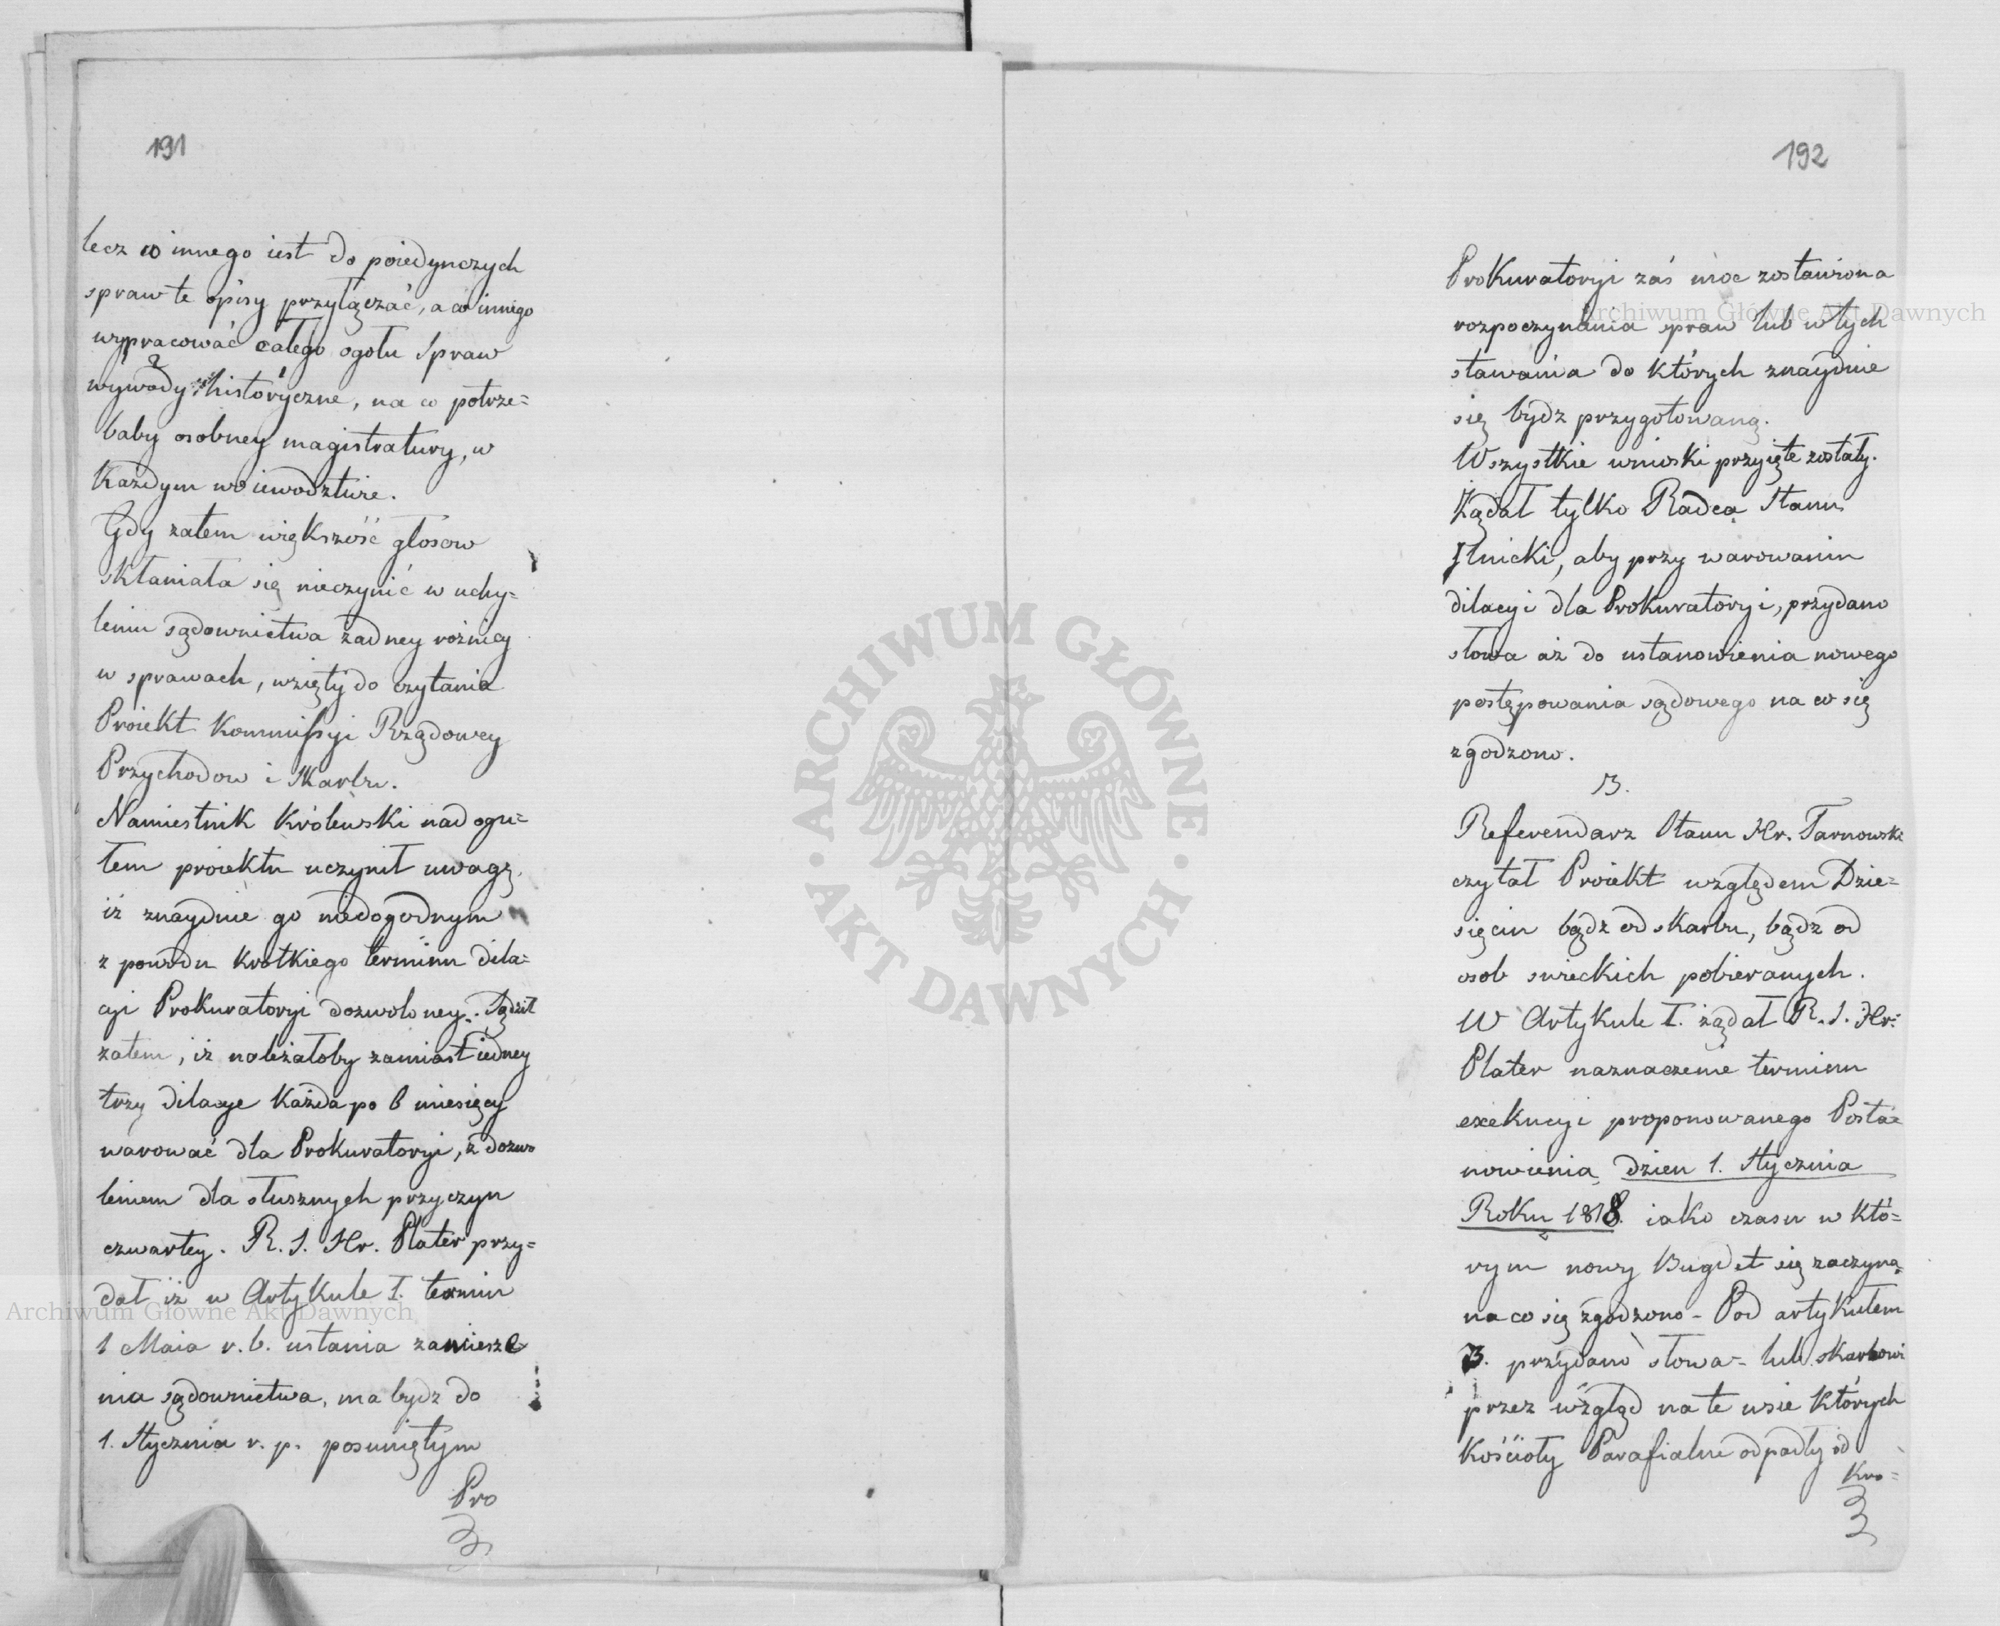 191
lecz co innego iest do poiedynczych
spraw te opisy przyłączać, a co innego
wypracować całego ogołu spraw
wywody historyczne, na co potrze=
baby osobney magistratury, w
Każdym woiewodztwie.
Gdy zatem większość głosow
skłaniała się nieczynić w uchy=
leniu sądownictwa żadney rożnicy
w sprawach, wzięty do czytania
Proiekt Kommissyi Rządowey
Przychodow i Skarbu.
Namiestnik Królewski nad ogu=
łem proiektu uczynił uwagę,
iż znayduie go niedogodnym
z powodu krotkiego terminu dila=
cyi Prokuratoryi dozwoloney. Sądził
zatem, iż należałoby zamiast iedney
trzy dilacye Każda po 6 miesięcy
warować dla Prokuratoryi, z dozwo
leniem dla słusznych przyczyn
czwartey. R. S. Hr. Plater przy=
dał iż w Artykule I. termin
1 Maia r. b. ustania zawiesze
nia sądownictwa, ma bydz do
1. Stycznia r. p. posuniętym
Pro
192
Prokuratoryi zaś moc zostawiona
rozpoczynania spraw lub w tych
stawania do których znayduie
się bydz przygotowaną.
Wszystkie wnioski przyięte zostały.
Żądał tylko Radca Stanu
Ilnicki, aby przy warowaniu
dilacyi dla Prokuratoryi, przydano
słowa aż do ustanowienia nowego
postępowania sądowego na co się
zgodzono.
3.
Referendarz Stanu Hr. Tarnowski
czytał Proiekt względem Dzie=
sięcin bądz od skarbu, bądz od
osob swieckich pobieranych.
W Artykule I. żądał R. S. Hr.
Plater naznaczenie terminu
exekucyi proponowanego Posta=
nowienia dzien 1. Stycznia
Roku 1818. iako czasu w któ=
rym nowy Bugdet się zaczyna,
na co się zgodzono - Pod artykułem
3. przydano słowa - lub skarbowi
przez wzgląd na te wsie których
Kościoły Parafialne odpadły od
Kro=
ARCHIWUM GŁÓWNE · AKT DAWNYCH ·
Archiwum Główne Akt Dawnych
Archiwum Główne Akt Dawnych